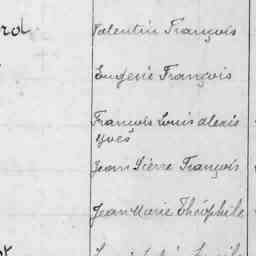 Valentin François
Eugène François
François Louis Alexis
Yves
Jean Pierre François
Jean Marie Théophile